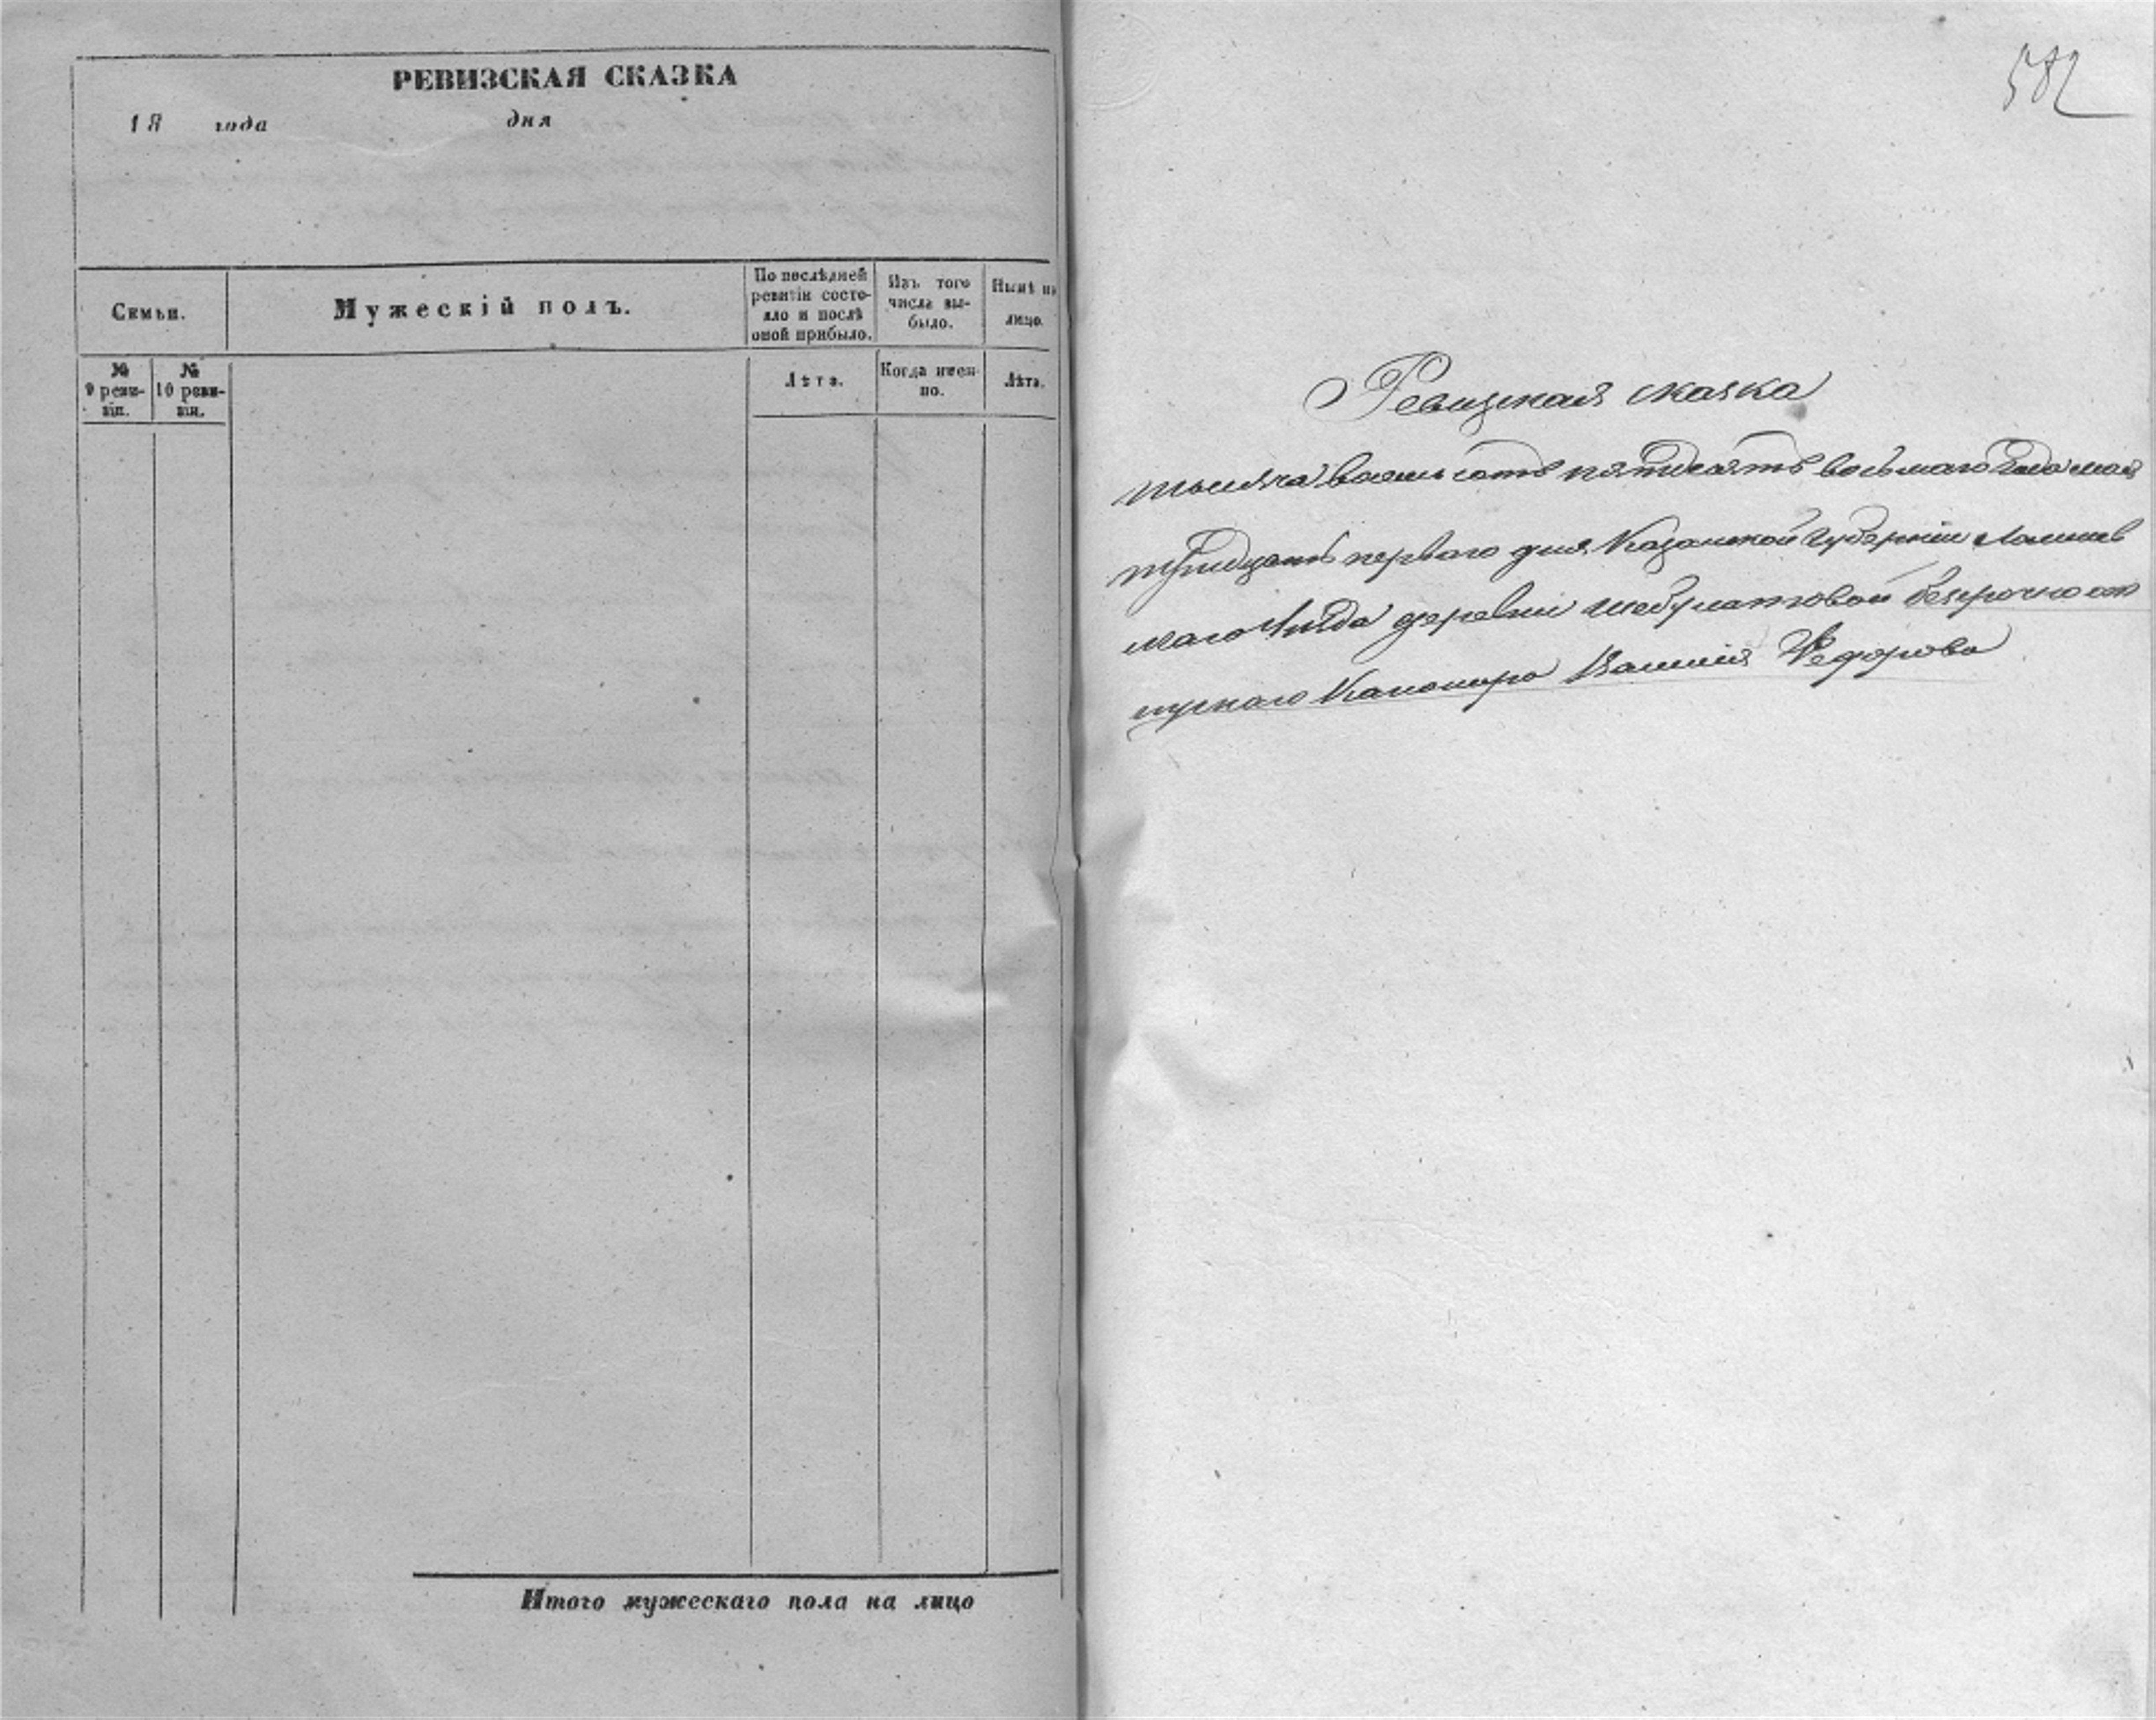 РЕВИЗСКАЯ СКАЗКА
18 года дня
Семьи.
Мужескій полъ.
По послѣдней
ревизіи состо-
яло и послѣ
оной прибыло.
Изъ того
числа вы-
было.
Нынѣ на
лицо.
№
9 реви-
зіи.
№
10 реви-
зіи.
Лѣта.
Когда имен-
но.
Лѣта.
Итого мужескаго пола на лицо
582
Ревизская сказка
тысяча восемь сотъ пятдесятъ восьмаго года мая
тридцать перваго дня Казанской Губерніи Лаишев
скаго уѣзда деревни безсрочно от
пускного Канонира Василия Федорова